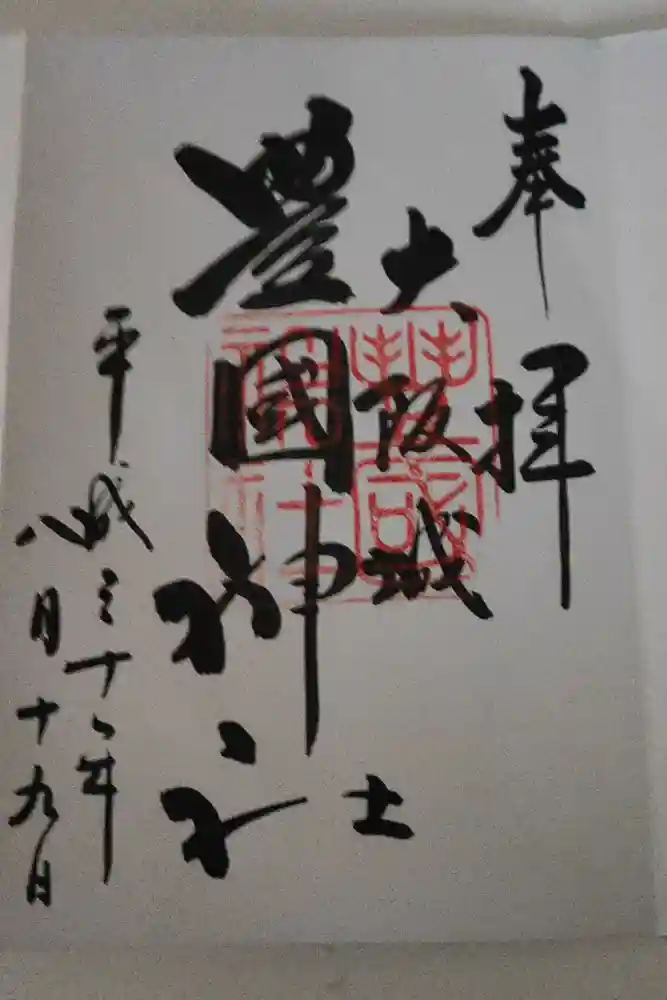 奉拝
大阪城
豊國神社
平成三十年
八月十九日
豐國神社